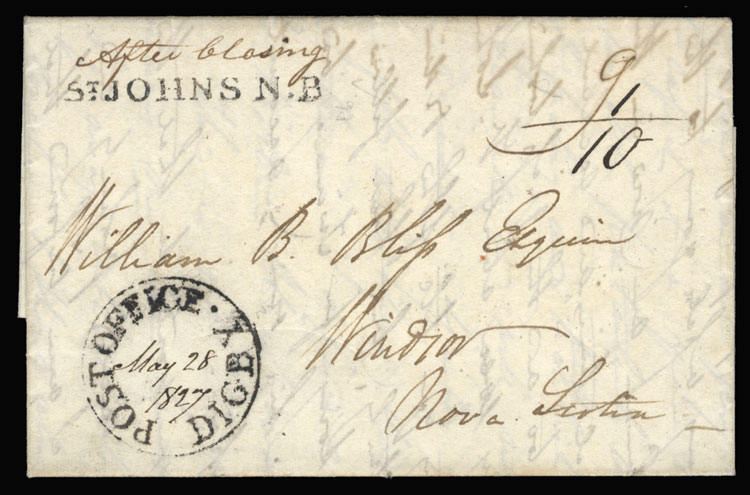 After Closing
ST JOHNS N.B
9
1
10
William B. Bliſs Esquire
Windsor
Nova Scotia
POST OFFICE · DIGBY
May 28
1827